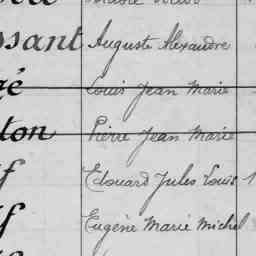 ssant Auguste Alexandre
gé Louis Jean Marie
ton Pierre Jean Marie
f Edouard Jules Louis 1
f Eugène Marie Michel